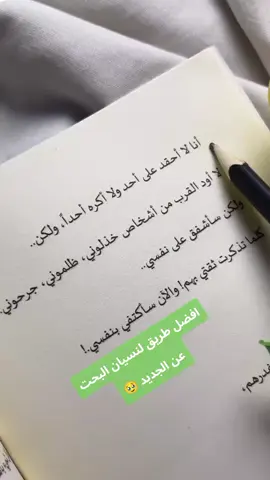 أنا لا أحقد على أحد ولا أكره أحداً، ولكن..
لا أود القرب من أشخاص خذلوني، ظلموني، جرحوني.
ولكن سأشفق على نفسي..
كلما تذكرت ثقتي بهم! والآن سأكتفي بنفسي.!
افضل طريق لنسيان البحت
عن الجديد 🥺